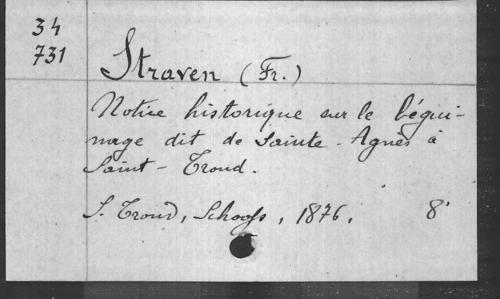 34
731
Straven (Fr.)
Notice historique sur le bégui-
nage dit de Sainte-Agnès à
Saint-Trond.
S. Trond, Schoofs, 1876, 8°